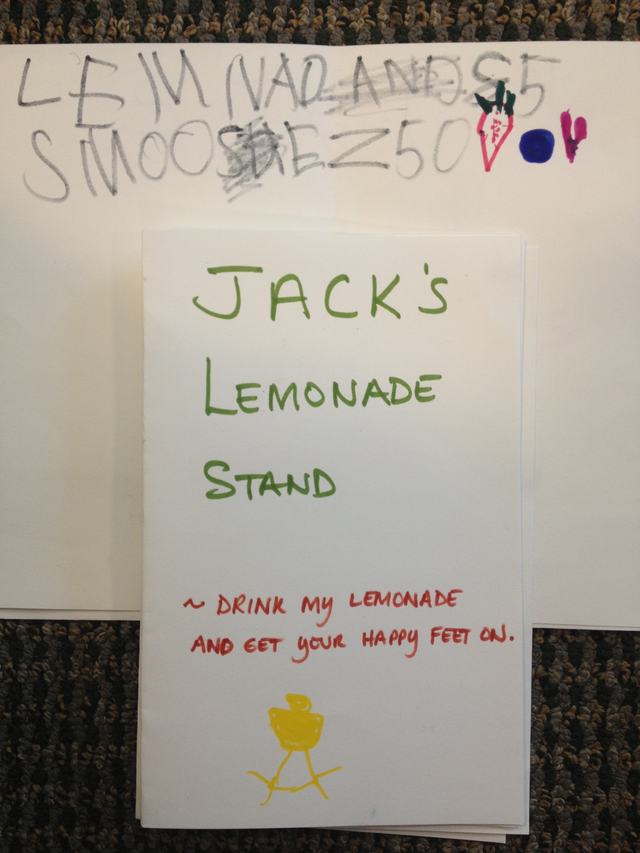 LEMNAD 5
SMOO EZ50
JACK'S
LEMONADE
STAND
~ DRINK MY LEMONADE
AND GET YOUR HAPPY FEET ON.